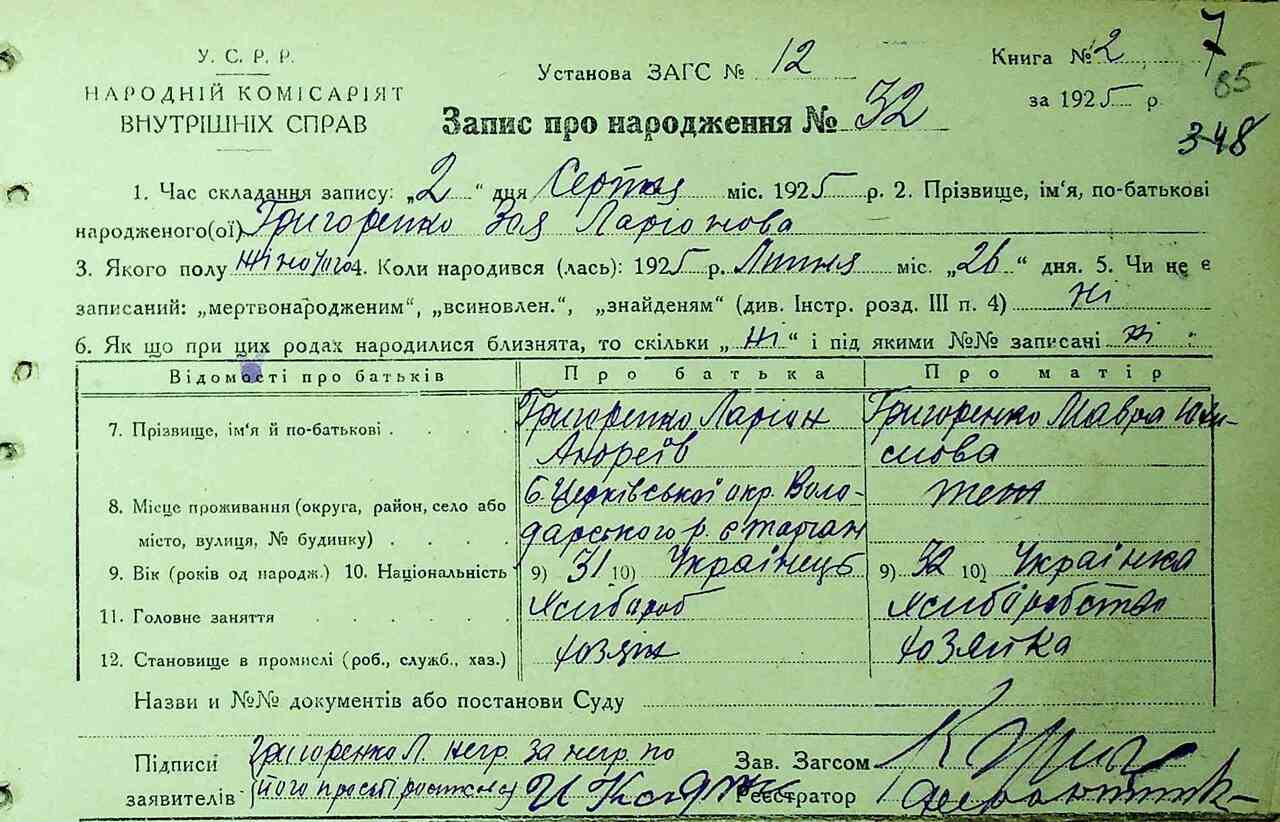 У. С. Р. Р.
НАРОДНІЙ КОМІСАРІЯТ
ВНУТРІШНІХ СПРАВ
Установа ЗАГС № 12
Книга № 2
за 1925 р.
7
85
348
Запис про народження № 32
1. Час складання запису: „2“ дня Серпня міс. 1925 р. 2. Прізвище, ім'я, по-батькові
народженого(ої) Григоренко Зоя Ларіонова
3. Якого полу жіночого 4. Коли народився (лась): 1925 р. Липня міс. „26“ дня. 5. Чи не є
записаний: „мертвонародженим“, „всиновлен.“, „знайденям“ (див. Інстр. розд. III п. 4) ні
6. Як що при цих родах народилися близнята, то скільки „ні“ і під якими №№ записані ні
Відомості про батьків Про батька Про матір
7. Прізвище, ім'я й по-батькові Григоренко Ларіон Григоренко Мавра
Андреїв
8. Місце проживання (округа, район, село або Б. Церківської окр. Воло-
місто, вулиця, № будинку) дарського р.
9. Вік (років од народж.) 10. Національність 9) 31 10) Українець 9) 32 10) Українка
11. Головне заняття Хлібороб Хліборобство
12. Становище в промислі (роб., служб., хаз.) хозяін хозяйка
Назви и №№ документів або постанови Суду
Підписи Григоренко Л. негр. за негр. по
заявителів його просьбі росписався
Зав. Загсом
Реєстратор